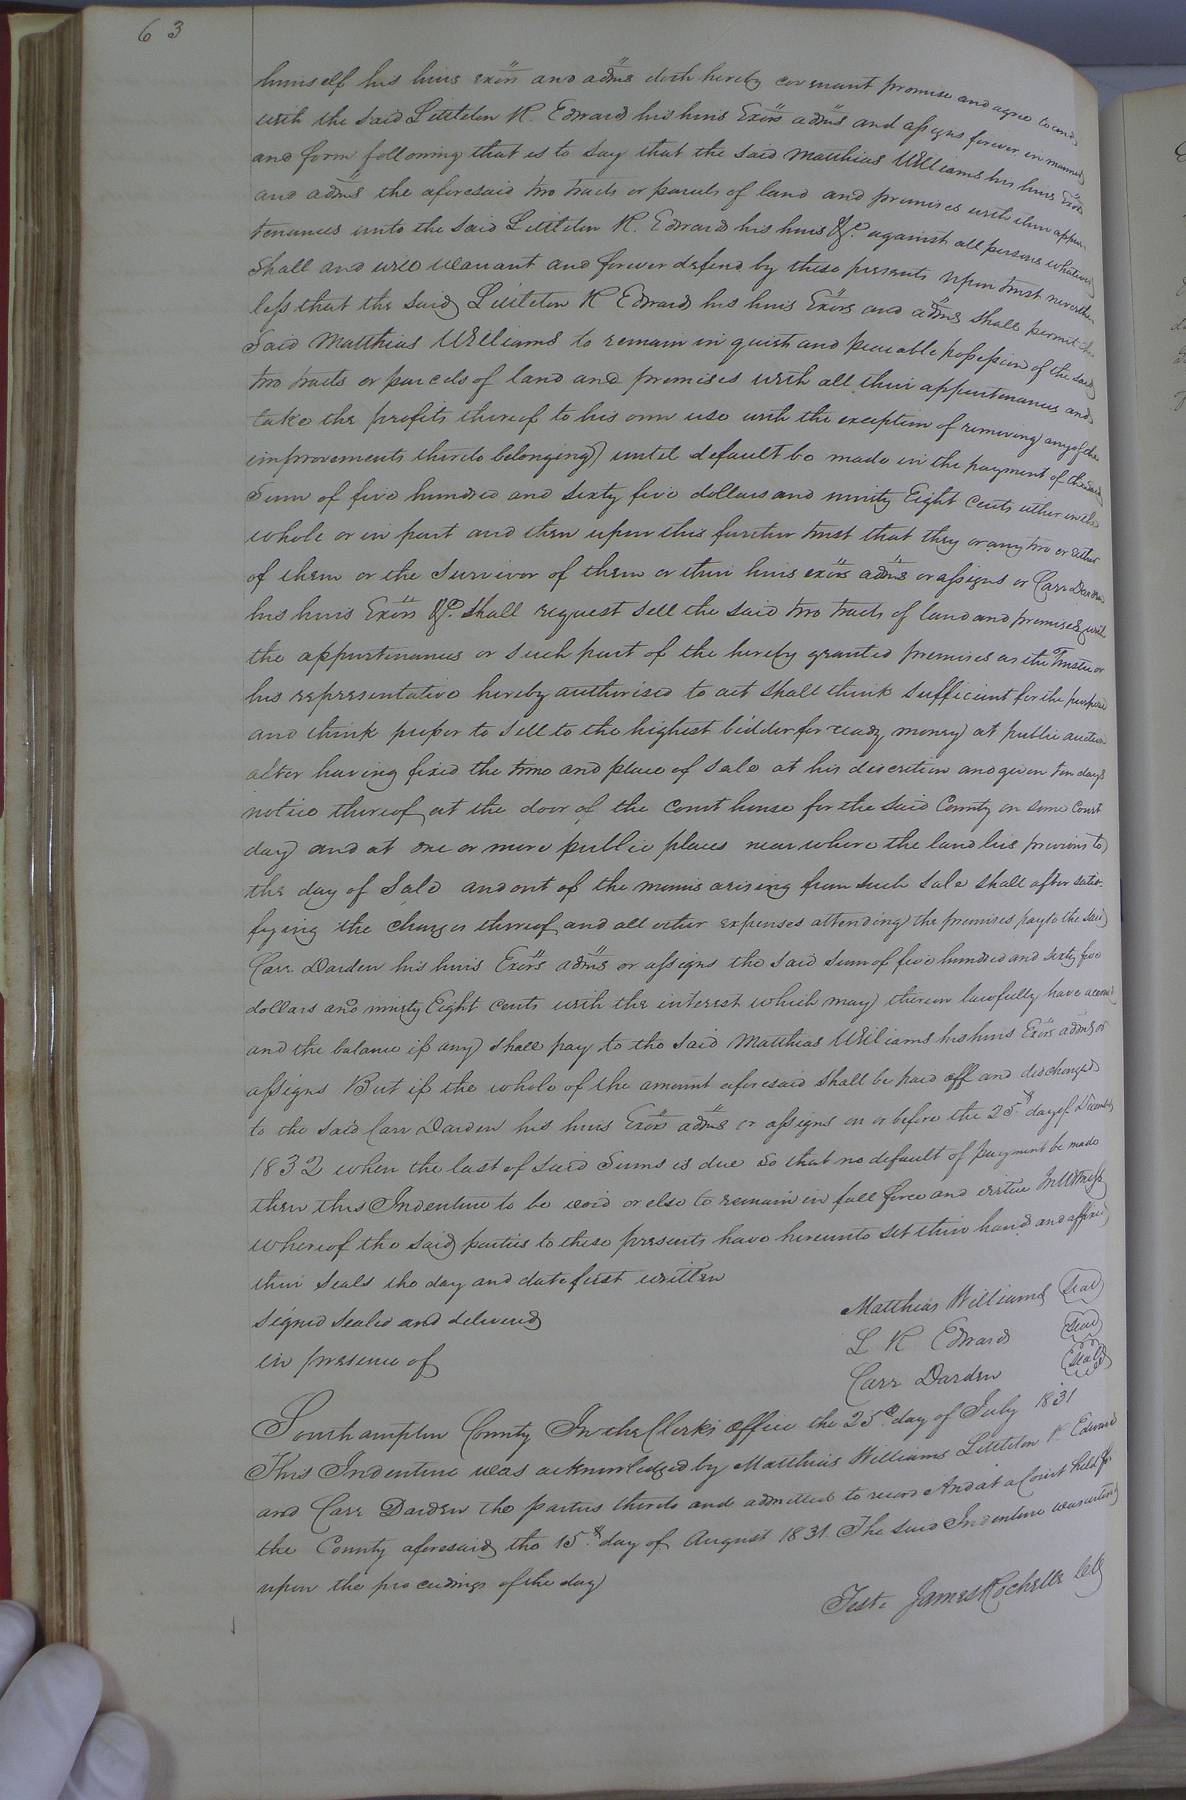 63
himself his heirs exōrs and adm̄s doth hereby covenant promise and agree to and
with the said Littleton R. Edward his heirs Exōrs adm̄s and assigns forever in manner
and form following that is to say that the said Matthias Williams his heirs Exōrs
and adm̄s the aforesaid two tracts or parcels of land and premises with their appur
tenances unto the said Littleton R. Edward his heirs &c. against all persons whatever
Shall and will warrant and forever defend by these presents upon trust neverthe
less that the said Littleton R Edward his heirs Exōrs and adm̄s shall permit the
said Matthias Williams to remain in quiet and peaceable possession of the said
two tracts or parcels of land and premises with all their appurtenances and
take the profits thereof to his own use with the exception of removing any of the
improvements thereto belonging) until default be made in the payment of the said
Sum of five hundred and sixty five dollars and ninety Eight cents either in the
whole or in part and then upon this further trust that they or any two or either
of them or the survivor of them or their heirs exōrs adm̄s or assigns or Carr Darden
his heirs Exōrs &c. shall request sell the said two tracts of land and premises with
the appurtenances or such part of the hereby granted premises as the Trustee or
his representative hereby authorised to act shall think sufficient for the purpose
and think proper to sell to the highest bidder for ready money at public auction
after having fixed the time and place of sale at his discretion and given ten days
notice thereof at the door of the court house for the said County on some court
day and at one or more public places near where the land lies previous to
the day of Sale and out of the monies arising from such sale shall after satis-
fying the charges thereof and all other expenses attending the premises pay to the said
Carr Darden his heirs Exōrs adm̄s or assigns the said sum of five hundred and sixty five
dollars and ninety Eight cents with the interest which may thereon lawfully have accrued
and the balance if any shall pay to the said Matthias Williams his heirs Exōrs adm̄s or
assigns But if the whole of the amount aforesaid shall be paid off and discharged
to the said Carr Darden his heirs Exōrs adm̄s or assigns on or before the 25th day of December
1832 when the last of said Sums is due so that no default of payment be made
then this Indenture to be void or else to remain in full force and virtue In Witness
whereof the said parties to these presents have hereunto set their hands and affixed
their seals the day and date first written
signed sealed and delivered
in presence of
Matthias Williams seal
L R Edward seal
Carr Darden seal
Southampton County In the Clerks office the 25th day of July 1831
This Indenture was acknowledged by Matthias Williams Littleton R Edward
and Carr Darden the parties thereto and admitted to record And at a Court held for
the County aforesaid the 15th day of August 1831. The said Indenture was entered
upon the proceedings of the day
Teste James Rochelle Clk